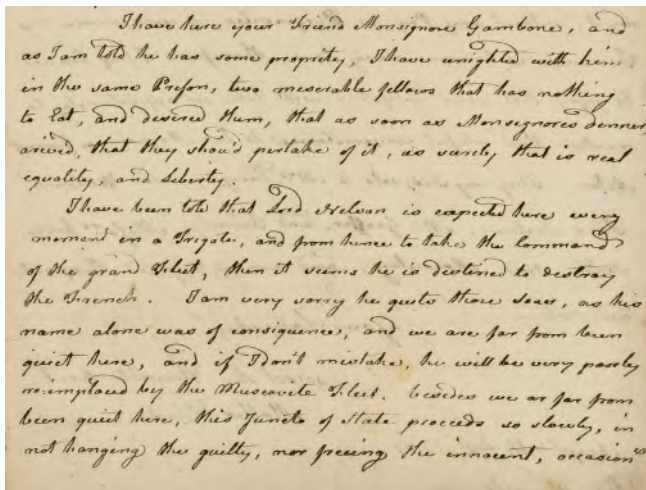 I have here your Friend Monsignore Gambone, and
as I am told he has some propriety, I have unighted with him
in the same Prison, two meserable fellows that has nothing
to Eat, and desired them, that as soon as Monsignores dinner,
arived, that they shou'd pertake of it, as surely that is real
equality, and Liberty.
I have been told that Lord Nelson is expected here every
moment in a Frigate, and from hence to take the Command
of the grand Fleet, then it seems he is destined to destroy
the French. I am very sorry he quits those seas, as his
name alone was of consiquence, and we are far from been
quiet here, and if I don't mistake, he will be very poorly
re:implaced by the Muscovite Fleet. besides we ar far from
been quiet here, this Juncto of State proceeds so slowly, in
not hanging the guilty, nor freeing the innocent, occasions